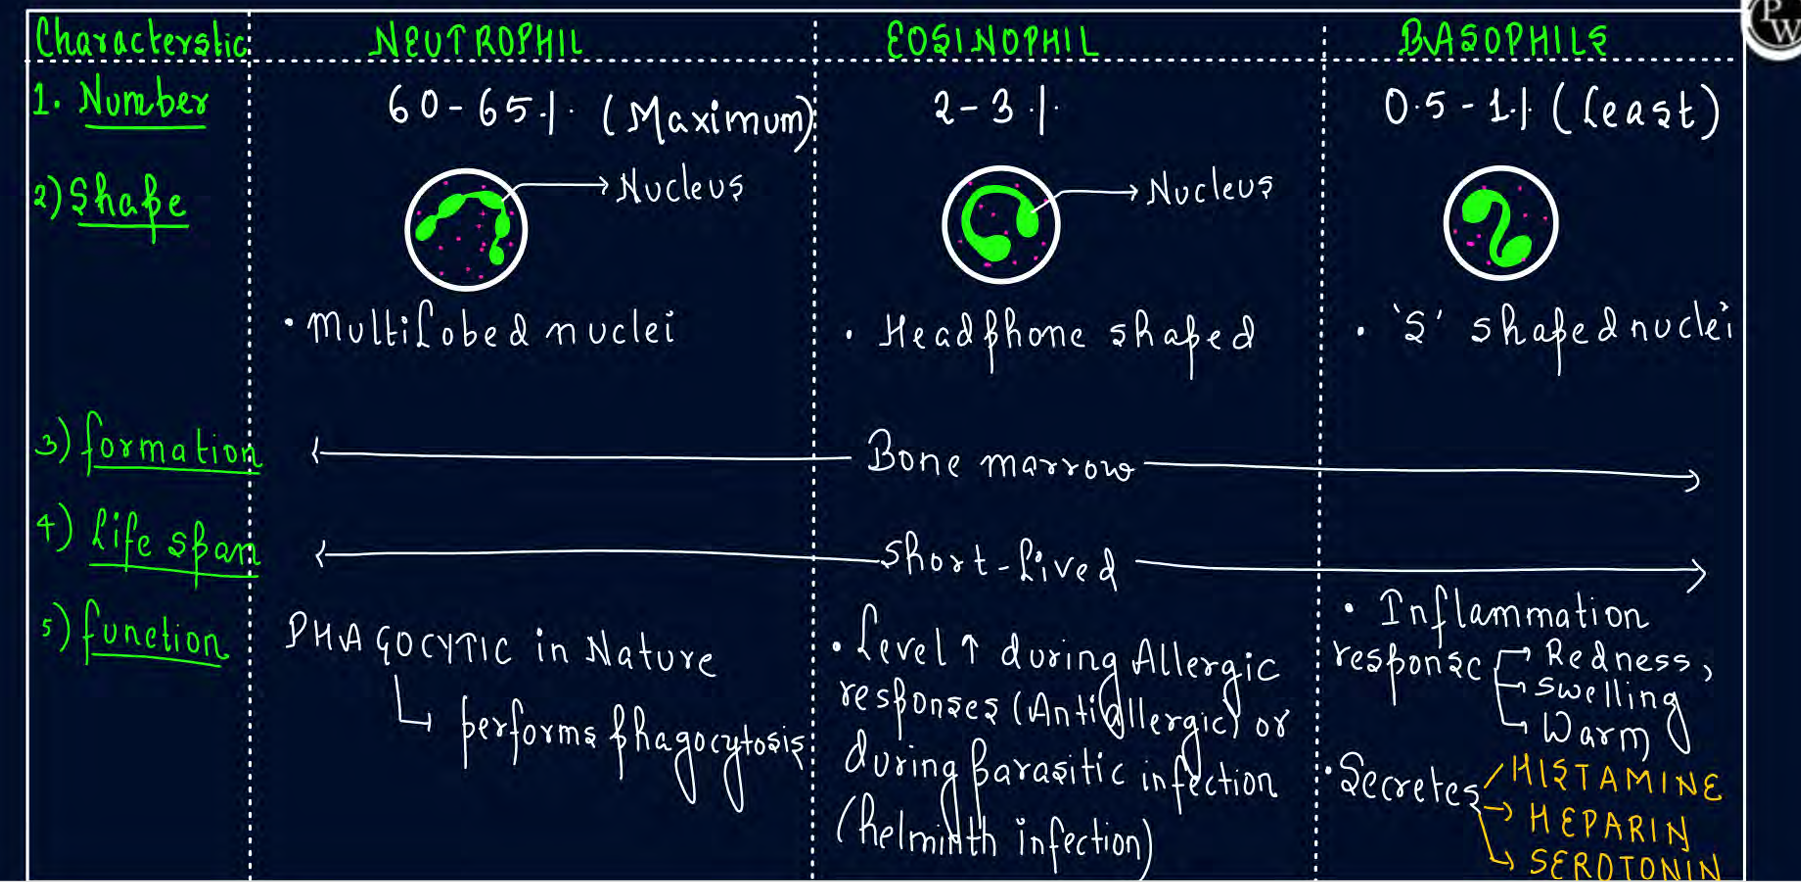 Characterstic NEUTROPHIL EOSINOPHIL BASOPHILS
PW
1. Number 60-65% (Maximum) 2-3% 0.5-1% (least)
2) Shape
Nucleus Nucleus
• Multilobed nuclei • Headphone shaped • 'S' shaped nuclei
3) formation Bone marrow
4) life span short-lived
5) function
PHAGOCYTIC in Nature
performs phagocytosis
• Level ↑ during Allergic
responses (Antiallergic) or
during parasitic infection
(helminth infection)
• Inflammation
response Redness,
swelling
Warm
• Secretes HISTAMINE
HEPARIN
SEROTONIN